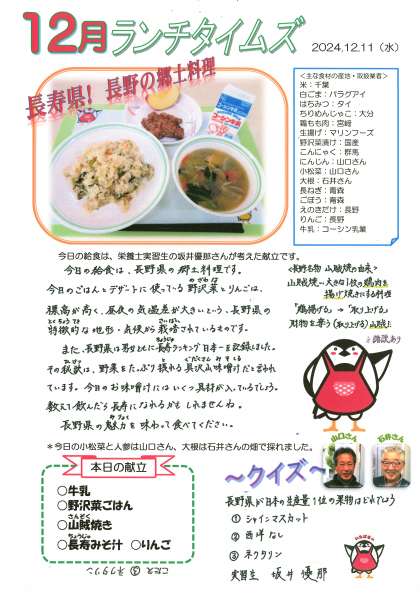 12月ランチタイムズ
2024.12.11（水）
長寿県！長野の郷土料理
＜主な食材の産地・取扱業者＞
米：千葉
白ごま：パラグアイ
はちみつ：タイ
ちりめんじゃこ：大分
鶏もも肉：宮崎
生揚げ：マリンフーズ
野沢菜漬け：国産
こんにゃく：群馬
にんじん：山口さん
小松菜：山口さん
大根：石井さん
長ねぎ：青森
ごぼう：青森
えのきだけ：長野
りんご：長野
牛乳：コーシン乳業
今日の給食は、栄養士実習生の坂井優那さんが考えた献立です。
今日の給食は、長野県の郷土料理です。
今日のごはんとデザートに使っている野沢菜とりんごは、
標高が高く、昼夜の気温差が大きいという、長野県の
特徴的な地形・気候から栽培されているものです。
また、長野県は男女ともに長寿ランキング日本一を記録しました。
その秘訣は、野菜をたっぷり摂れる具沢山味噌汁だと言われ
ています。今日のお味噌汁にはいくつ具材が入っているでしょう。
数えて飲んだら長寿になれるかもしれませんね。
長野県の魅力を味わって食べてください。
＜長野名物 山賊焼の由来＞
山賊焼…大きな1枚の鶏肉を
揚げ焼きにする料理
「鶏揚げる」→「取り上げる」
財物を奪う（取り上げる）山賊に
諸説あり
＊今日の小松菜と人参は山口さん、大根は石井さんの畑で採れました。
山口さん
石井さん
本日の献立
〇牛乳
〇野沢菜ごはん
さんぞく
〇山賊焼き
ちょうじゅ
〇長寿みそ汁 〇りんご
～クイズ～
長野県が日本の生産量1位の果物はどれでしょう
① シャインマスカット
② 西洋なし
③ ネクタリン
実習生 坂井優那
こたえ ③ ネクタリン